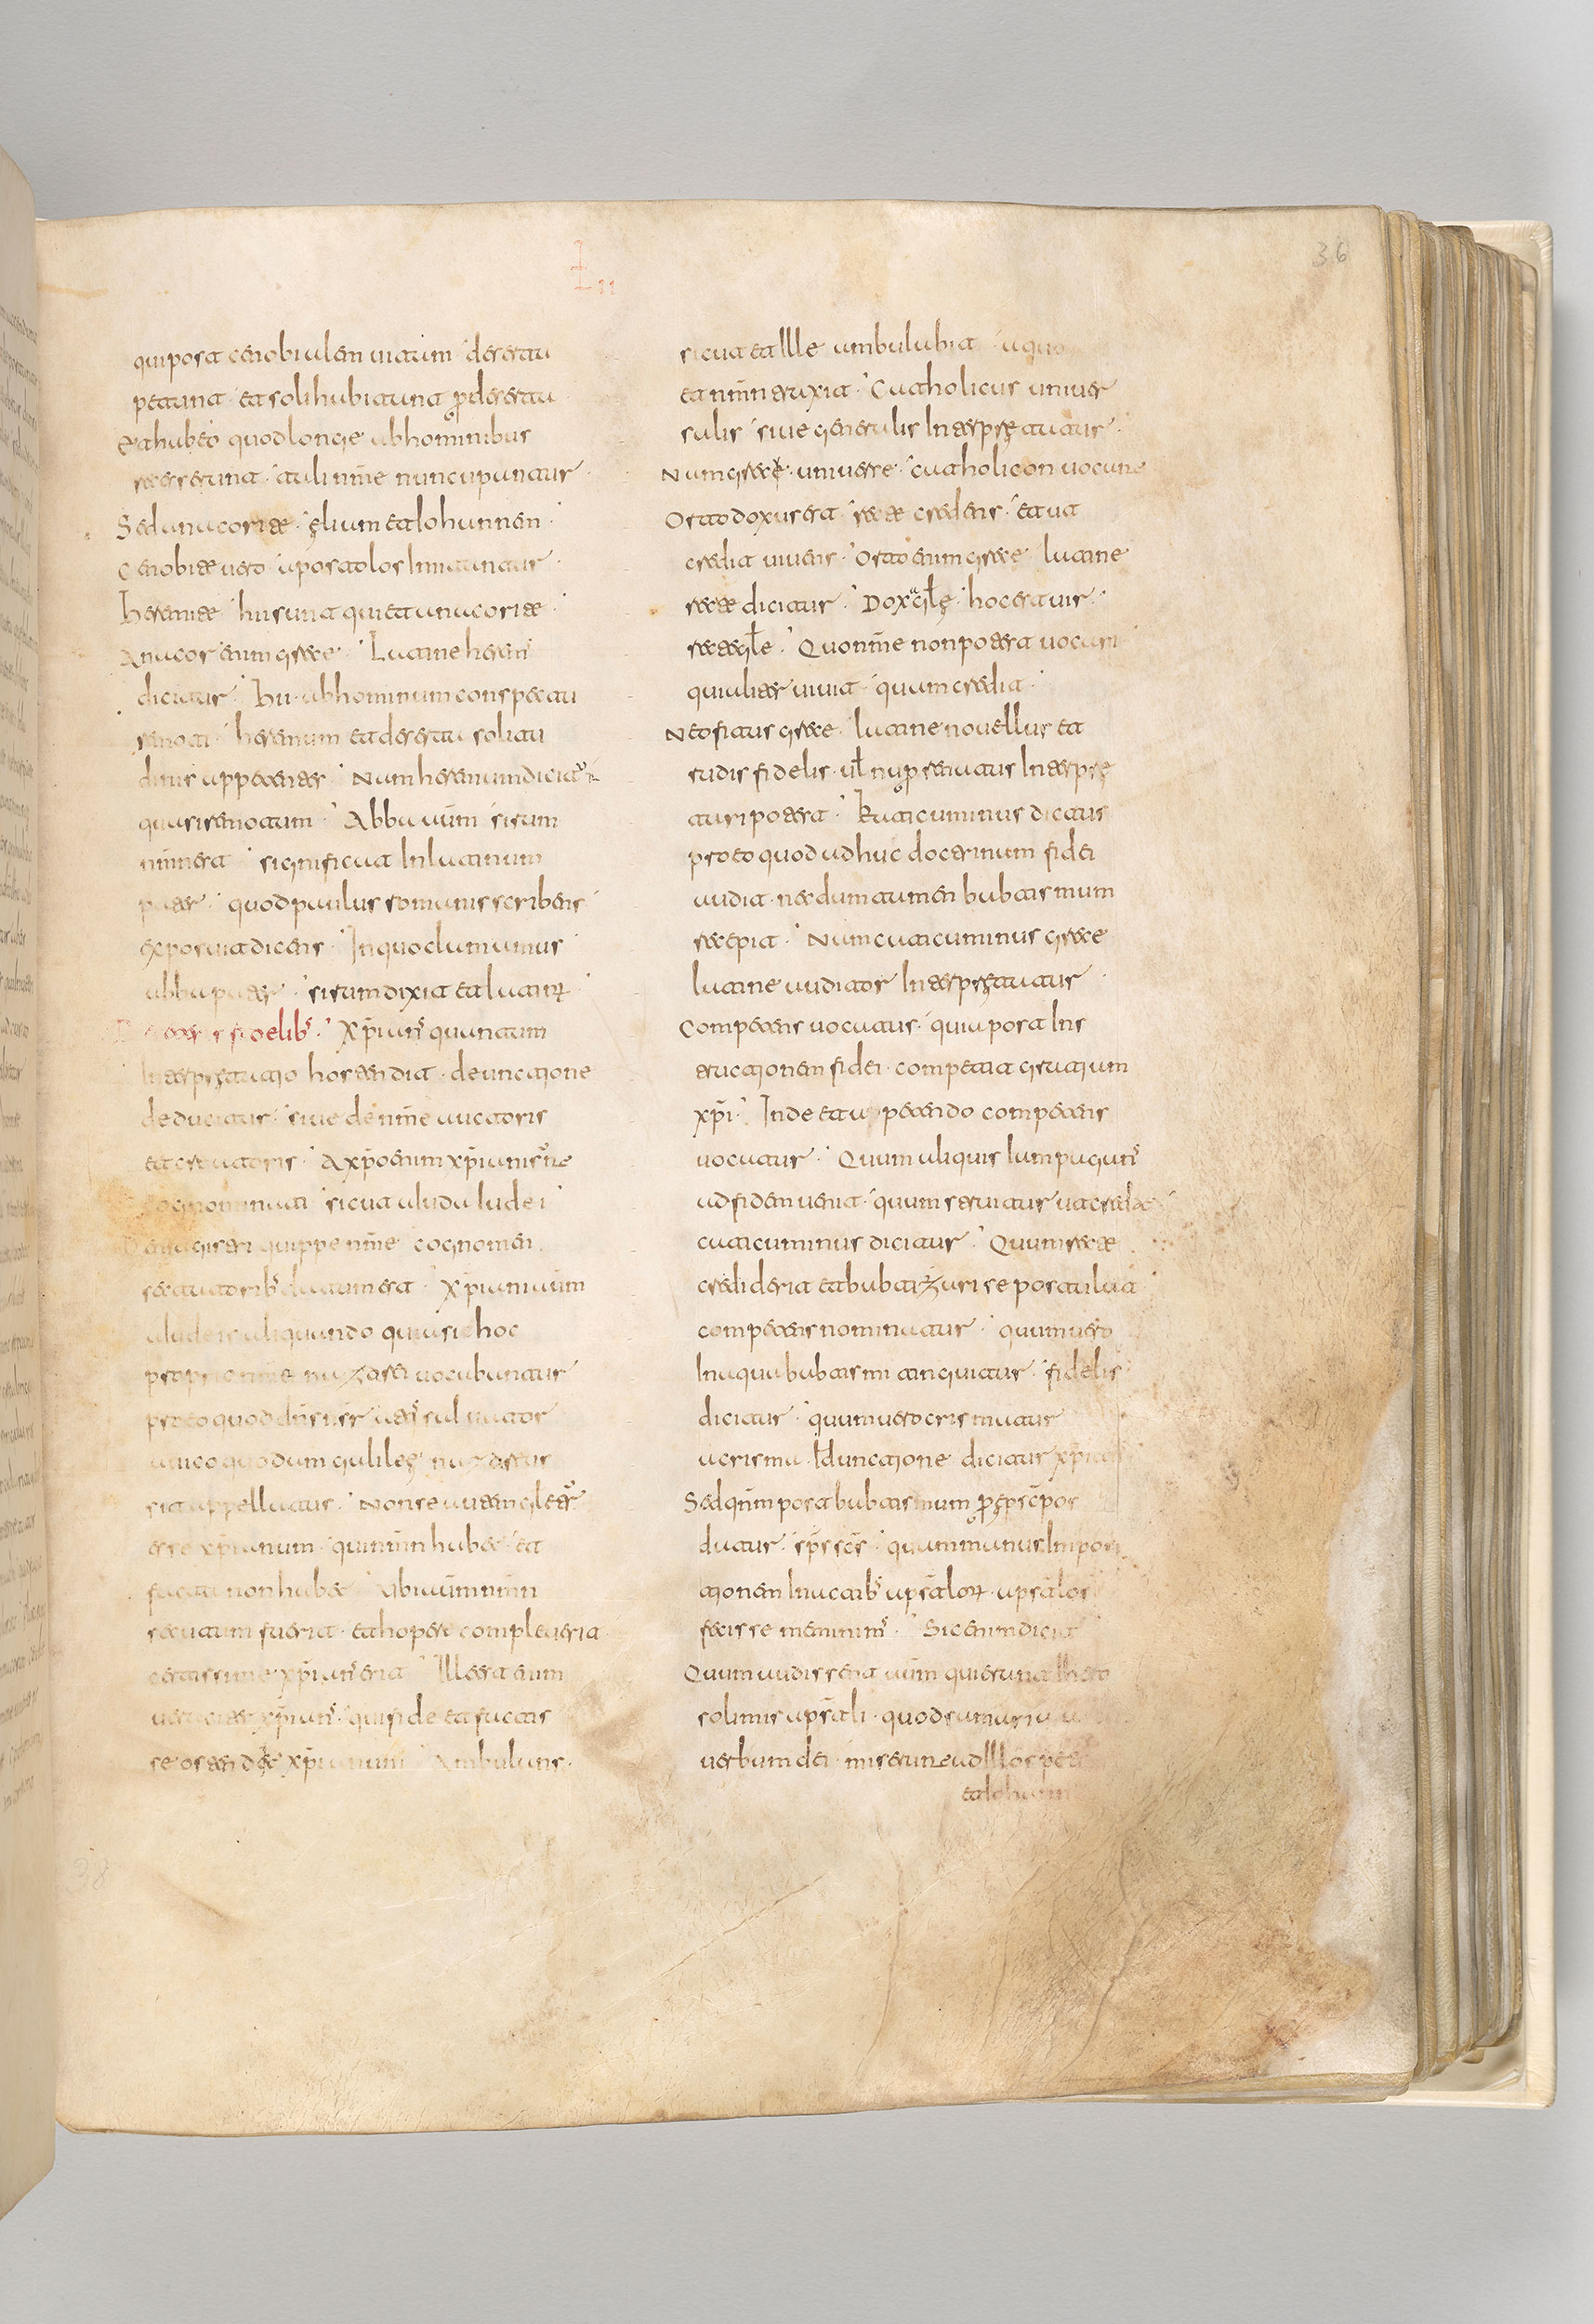 36
qui post cenobialem uitam deserta
petunt et soli habitant p̄ deserta
et ab eo quod longe ab hominibus
recesserunt tali nm̄e nuncupantur
Sed anacorite eliu et Iohannen
Cenobite uero apostolos Imitantur
heremite hii sunt qui et anacorite
Anacor enim grece Latine herem̄
dicitur hii ab hominum conspectu
remoti heremum et desertas solitu
dines appetentes Nam heremum dicitur
quasi remotum Abba aūm sirum
nm̄n est significat In latinum
pater quod paulus romanis scribens
exposuit dicens In quo clamamus
abba pater sirum dixit et latinū
De ceteris fidelib; xp̄ian; quantum
Interpretatio hostendit de unctione
deducitur siue de nm̄e auctoris
et creatoris A xp̄o enim xp̄iani sūt
cognominati sicut a Iuda Iudei
De magistri quippe nm̄e cognomen
sectatorib; datum est xp̄iani aūm
a Iudeis aliquando quasi hoc
proprio nm̄e nazarei uocabantur
pro eo quod dn̄s nsr̄ atq; saluator
a uico quodam galilee nazareus
sit appellatus Non se autem gl̄etur
esse xp̄ianum qui nm̄n habet et
facta non habet Ubi aūm nm̄n
secutum fuerit et hopere compleuerit
certissime xp̄ian; erit Ille est enim
uerus xp̄ian; qui fide et factis
se ostendet xp̄ianum Ambulans
sicut et Ille ambulabit a quo
et nm̄n traxit Catholicus uniuer
salis siue generalis Interpretatur
Nam greci uniuersale catholicon uocant
Ortodoxus est recte credens et ut
credit uiuens Orto enim grece latine
recte dicitur Doxa gl̄e hoc est uir
recte gl̄e Quo nm̄e non potest uocari
qui aliter uiuit quam credit
Neofitus grece latine nouellus et
rudis fidelis uł nup̄ renatus Interpre
tari potest Katicuminus dictus
pro eo quod adhuc doctrinam fidei
audit necdum tamen babtismum
recepit Nam caticuminus grece
latine auditor Interpretatur
Competens uocatus quia post Ins
tructionem fidei competit gratiam
xp̄i Inde et a petendo competens
uocatur Quum aliquis Iam pagan;
ad fidem uenit
caticuminus dicitur Quum recte
crediderit et babtizari se postulat
competens nominatur quum uero
In aqua babtismi tinguitur fidelis
dicitur quum uero crismatur
a crismu Id unctione dicitur xp̄ian;
Sed qn̄m post babtismum
datur sp̄s scs̄ quum manus Imposi
tionem In actib; aps̄talorum aps̄talos
fecisse meminim; Sic enim dicit
Quum audissent aūm qui erant Ihero
solimis aps̄tali quod samaria
uerbum dei miserunt ad Illos petrum
et Iohannem
38